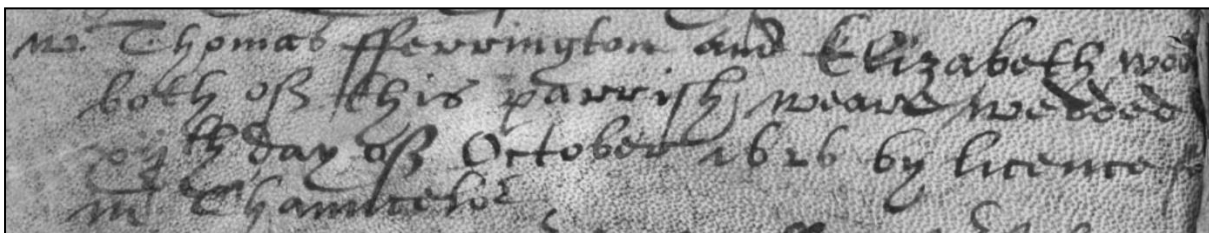 m. Thomas fferrington and Elizabeth wod
both of this parrish weare wedded
xijth day of October 1616 by licence
mr Chauncelor